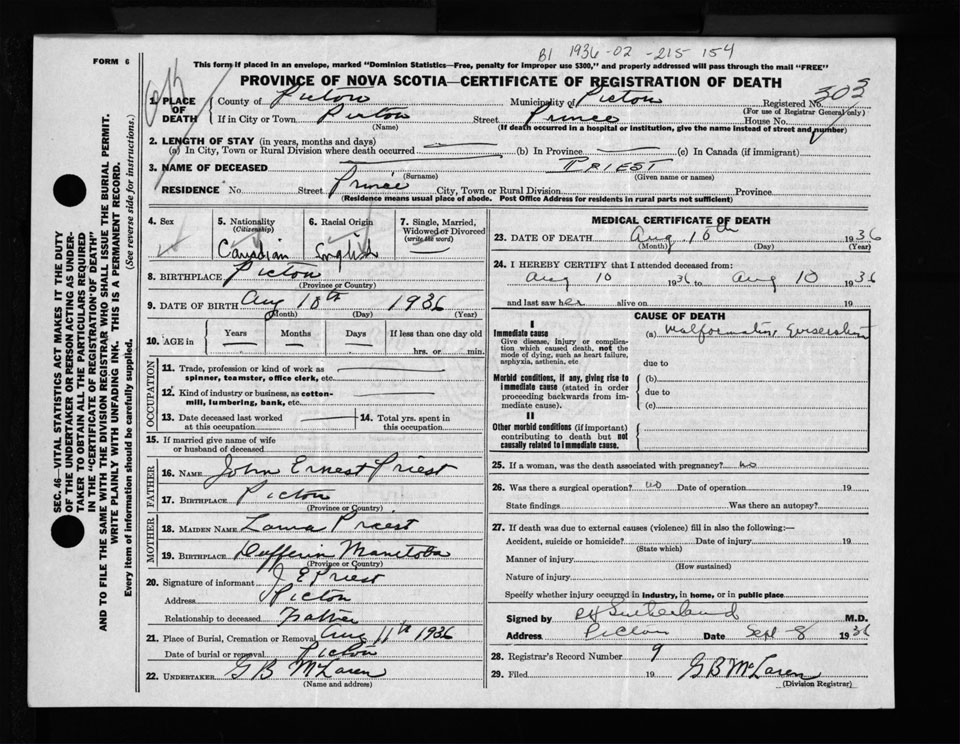 B1 1936-02-215 154
FORM 6
This form if placed in an envelope, marked "Dominion Statistics—Free, penalty for improper use $300," and properly addressed will pass through the mail "FREE"
PROVINCE OF NOVA SCOTIA—CERTIFICATE OF REGISTRATION OF DEATH
SEC. 46—VITAL STATISTICS ACT MAKES IT THE DUTY
OF THE UNDERTAKER OR PERSON ACTING AS UNDER-
TAKER TO OBTAIN ALL THE PARTICULARS REQUIRED
IN THE "CERTIFICATE OF REGISTRATION OF DEATH"
AND TO FILE THE SAME WITH THE DIVISION REGISTRAR WHO SHALL ISSUE THE BURIAL PERMIT.
WRITE PLAINLY WITH UNFADING INK. THIS IS A PERMANENT RECORD.
Every item of information should be carefully supplied. (See reverse side for instructions.)
1. PLACE OF DEATH
County of Pictou Municipality of Pictou Registered No. 303
(For use of Registrar General only)
If in City or Town Pictou Street Prince House No.
(Name) (If death occurred in a hospital or institution, give the name instead of street and number)
2. LENGTH OF STAY (in years, months and days)
(a) In City, Town or Rural Division where death occurred (b) In Province (c) In Canada (if immigrant)
3. NAME OF DECEASED PRIEST
(Surname) (Given name or names)
RESIDENCE No. Street Prince City, Town or Rural Division Province
(Residence means usual place of abode. Post Office Address for residents in rural parts not sufficient)
4. Sex 5. Nationality (Citizenship) 6. Racial Origin 7. Single, Married, Widowed or Divorced (write the word)
Canadian English
8. BIRTHPLACE Pictou
(Province or Country)
9. DATE OF BIRTH Aug 10th 1936
(Month) (Day) (Year)
10. AGE in Years Months Days If less than one day old
hrs. or min.
OCCUPATION
11. Trade, profession or kind of work as
spinner, teamster, office clerk, etc.
12. Kind of industry or business, as cotton-
mill, lumbering, bank, etc.
13. Date deceased last worked
at this occupation
14. Total yrs. spent in
this occupation
15. If married give name of wife
or husband of deceased
FATHER
16. NAME John Ernest Priest
17. BIRTHPLACE Pictou
(Province or Country)
MOTHER
18. MAIDEN NAME Priest
19. BIRTHPLACE Dufferin Manitoba
(Province or Country)
20. Signature of informant J E Priest
Address Pictou
Relationship to deceased Father
21. Place of Burial, Cremation or Removal Aug 11th 1936
Date of burial or removal Pictou
22. UNDERTAKER G B McLaren
(Name and address)
MEDICAL CERTIFICATE OF DEATH
23. DATE OF DEATH Aug. 10th 1936
(Month) (Day) (Year)
24. I HEREBY CERTIFY that I attended deceased from:
Aug 10 1936 to Aug 10 1936
and last saw her alive on 19
CAUSE OF DEATH
I
Immediate cause
Give disease, injury or complica-
tion which caused death, not the
mode of dying, such as heart failure,
asphyxia, asthenia, etc.
(a) Malformation
due to
Morbid conditions, if any, giving rise to
immediate cause (stated in order
proceeding backwards from im-
mediate cause).
(b)
due to
(c)
II
Other morbid conditions (if important)
contributing to death but not
causally related to immediate cause.
25. If a woman, was the death associated with pregnancy? no
26. Was there a surgical operation? no Date of operation 19
State findings Was there an autopsy?
27. If death was due to external causes (violence) fill in also the following:—
Accident, suicide or homicide? Date of injury 19
(State which)
Manner of injury
(How sustained)
Nature of injury
Specify whether injury occurred in industry, in home, or in public place
Signed by Sutherland M.D.
Address Pictou Date Sept 8 1936
28. Registrar's Record Number 9
29. Filed 19 G B McLaren
(Division Registrar)